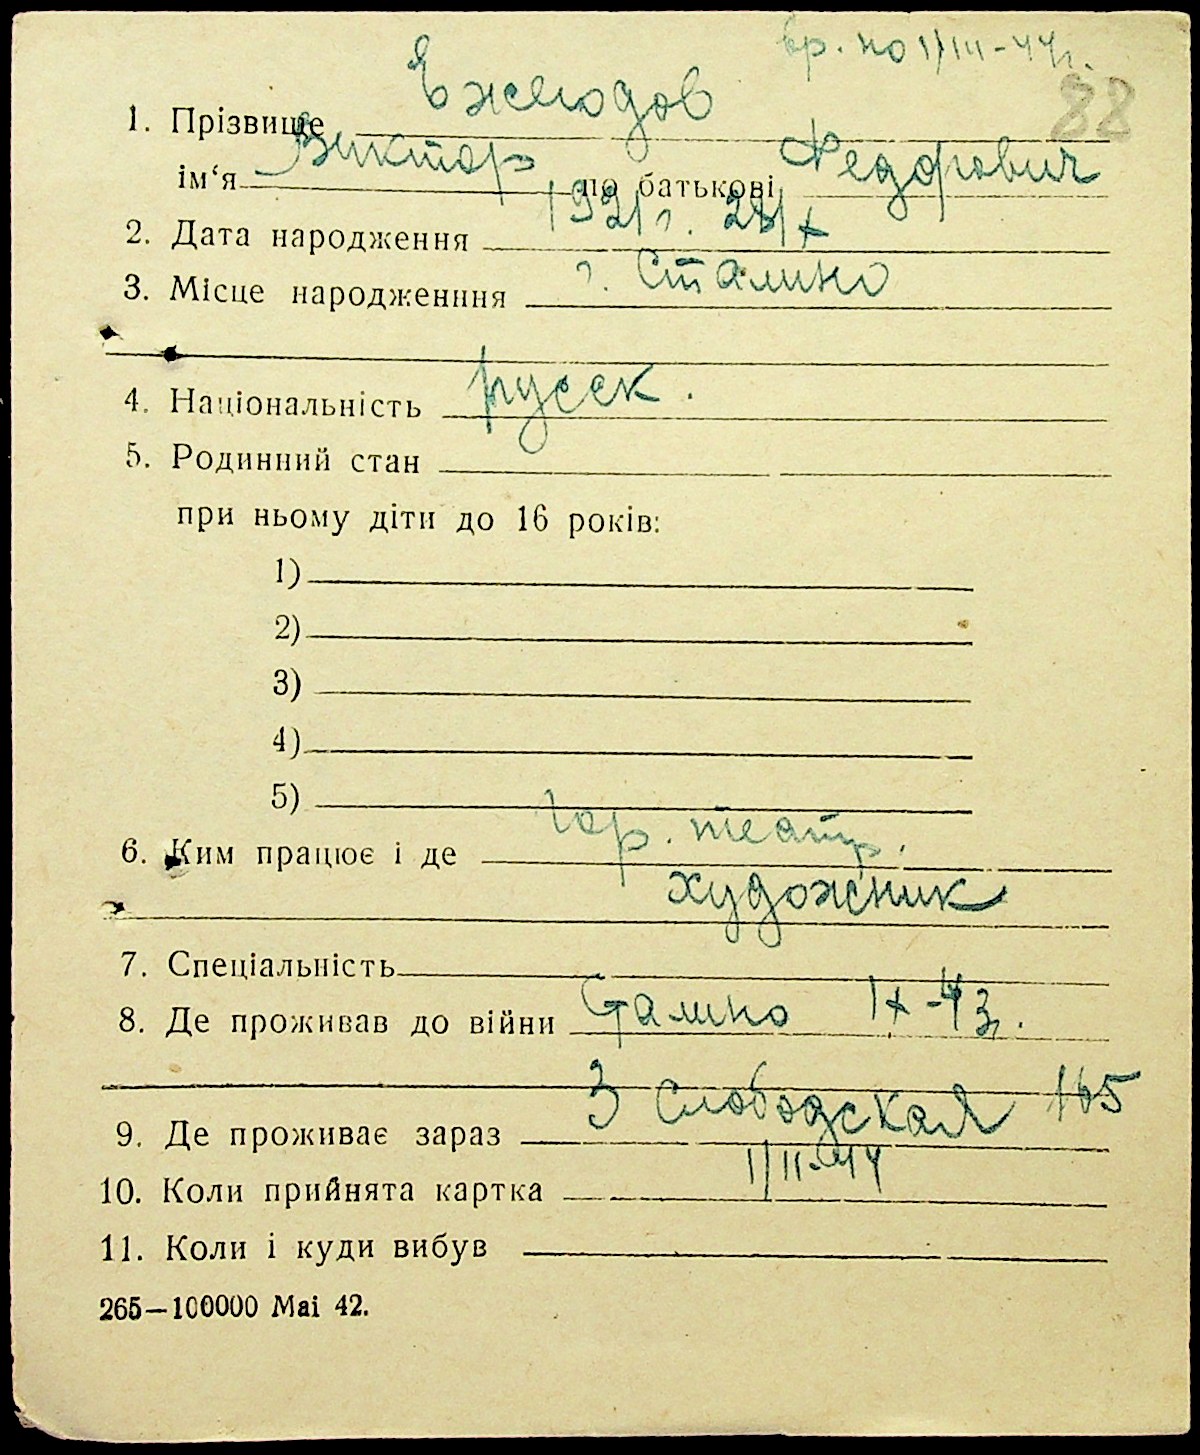 вр. по 1/III-44г.
88
1. Прізвище Ежегодов
ім‘я Виктор по батькові Федорович
2. Дата народження 1921 г. 28/X
3. Місце народженння г. Сталино
4. Національність русск.
5. Родинний стан
при ньому діти до 16 років:
1)
2)
3)
4)
5)
6. Ким працює і де Гор. театр.
художник
7. Спеціальність
8. Де проживав до війни Сталино IX-43г.
9. Де проживає зараз 3 Слободская 165
10. Коли прийнята картка 1/II-44
11. Коли і куди вибув
265—100000 Mai 42.